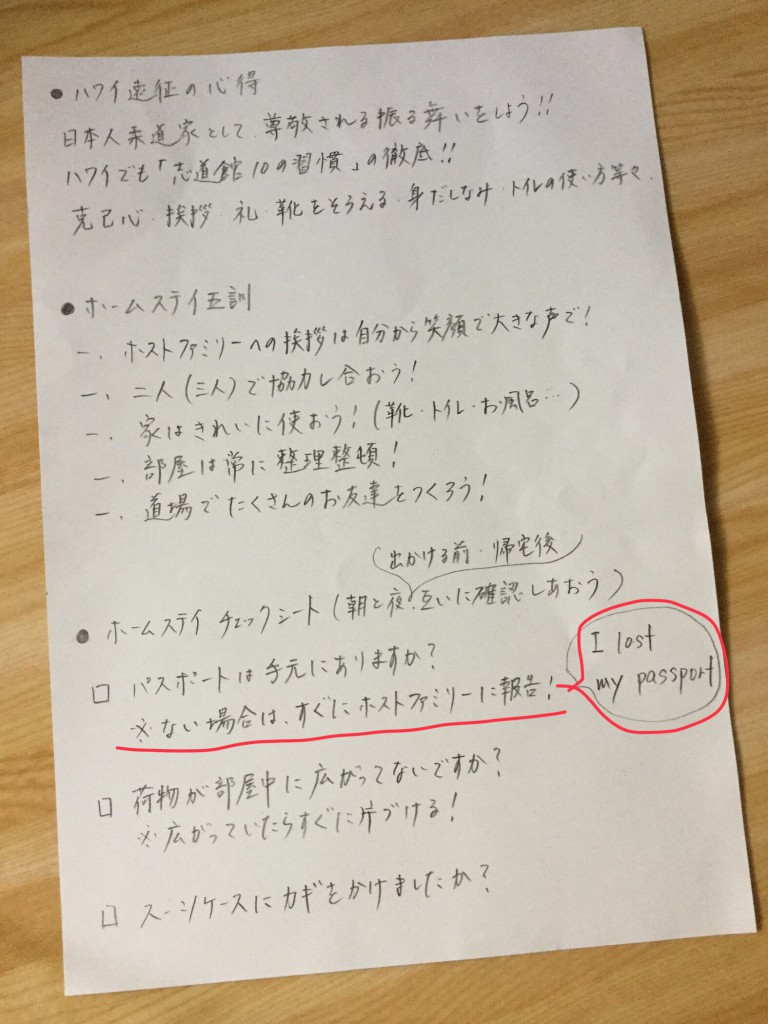 ● ハワイ遠征の心得
日本人柔道家として、尊敬される振る舞いをしよう!!
ハワイでも「志道館10の習慣」の徹底!!
克己心・挨拶・礼・靴をそろえる・身だしなみ・トイレの使い方等々.
● ホームステイ五訓
一、ホストファミリーへの挨拶は自分から笑顔で大きな声で!
一、二人(三人)で協力し合おう!
一、家はきれいに使おう!(靴・トイレ・お風呂…)
一、部屋は常に整理整頓!
一、道場でたくさんのお友達をつくろう!
出かける前・帰宅後
● ホームステイ チェックシート(朝と夜、互いに確認しあおう)
□ パスポートは手元にありますか?
※ない場合は、すぐにホストファミリーに報告!
I lost
my passport
□ 荷物が部屋中に広がってないですか?
※広がっていたらすぐに片づける!
□ スーツケースにカギをかけましたか?